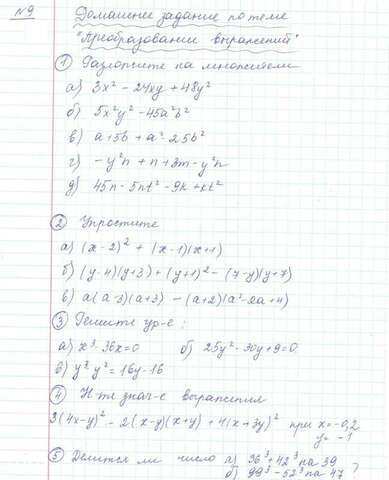 №9
Домашнее задание по теме
"Преобразовании выражений"
① Разложите на множители
а) 3x² - 24xy + 48y²
б) 5x²y² - 45a²b²
в) a + 5b + a² - 25b²
г) -y²n + n + 3m - y²n
д) 45n - 5nt² - 9k + kt²
② Упростите
а) (x-2)² + (x-1)(x+1)
б) (y-4)(y+3) + (y+1)² - (7-y)(y+7)
в) a(a-3)(a+3) - (a+2)(a²-2a+4)
③ Решите ур-е:
а) x³ - 36x = 0 б) 25y² - 30y + 9 = 0
в) y³ y² = 16y - 16
④ Н-те знач-е выражения
3(4x-y)² - 2(x-y)(x+y) + 4(x+3y)² при x = -0,2
y = -1
⑤ Делится ли число а) 36³ + 42³ на 39
б) 99³ - 52³ на 47 ?